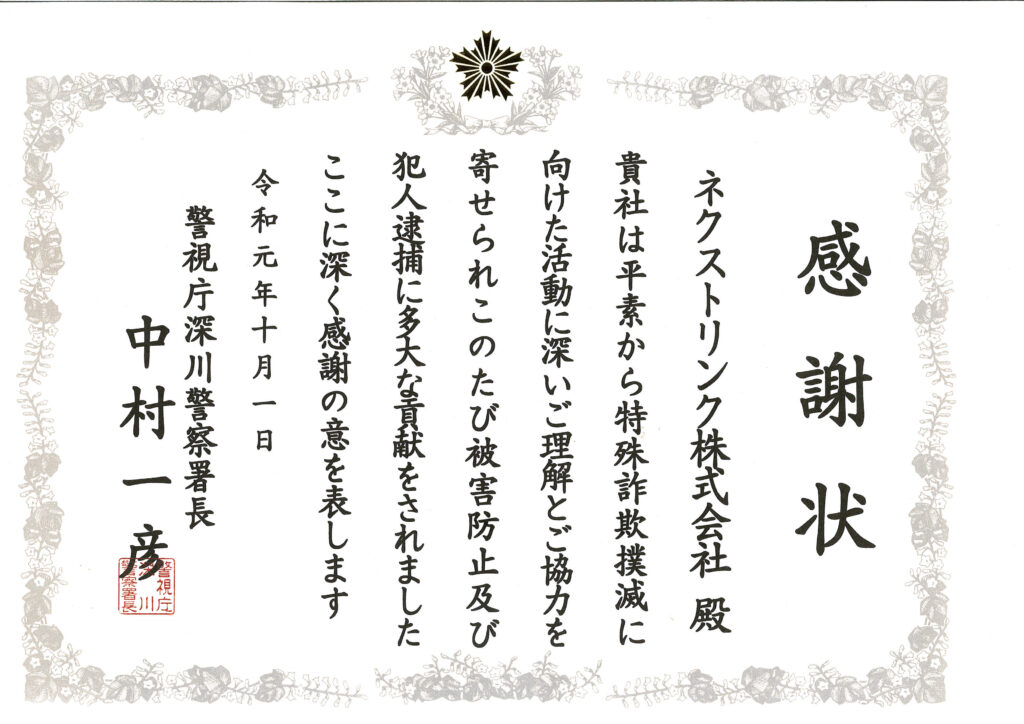 感謝状
ネクストリンク株式会社 殿
貴社は平素から特殊詐欺撲滅に
向けた活動に深いご理解とご協力を
寄せられこのたび被害防止及び
犯人逮捕に多大な貢献をされました
ここに深く感謝の意を表します
令和元年十月一日
警視庁深川警察署長
中村一彦
警視庁
深川
警察署長